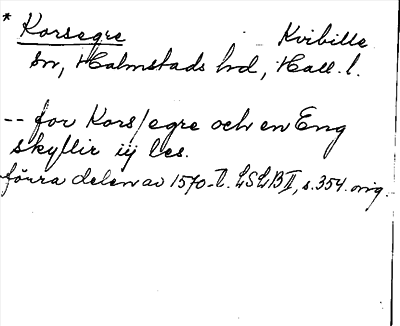 * Korsegre Kvibille
sn, Halmstads hd, Hall. l.
-- for Kors/egre och en Eng
skyllir iij les.
förra delen av 1570-t. LSLB II, s. 354. orig.